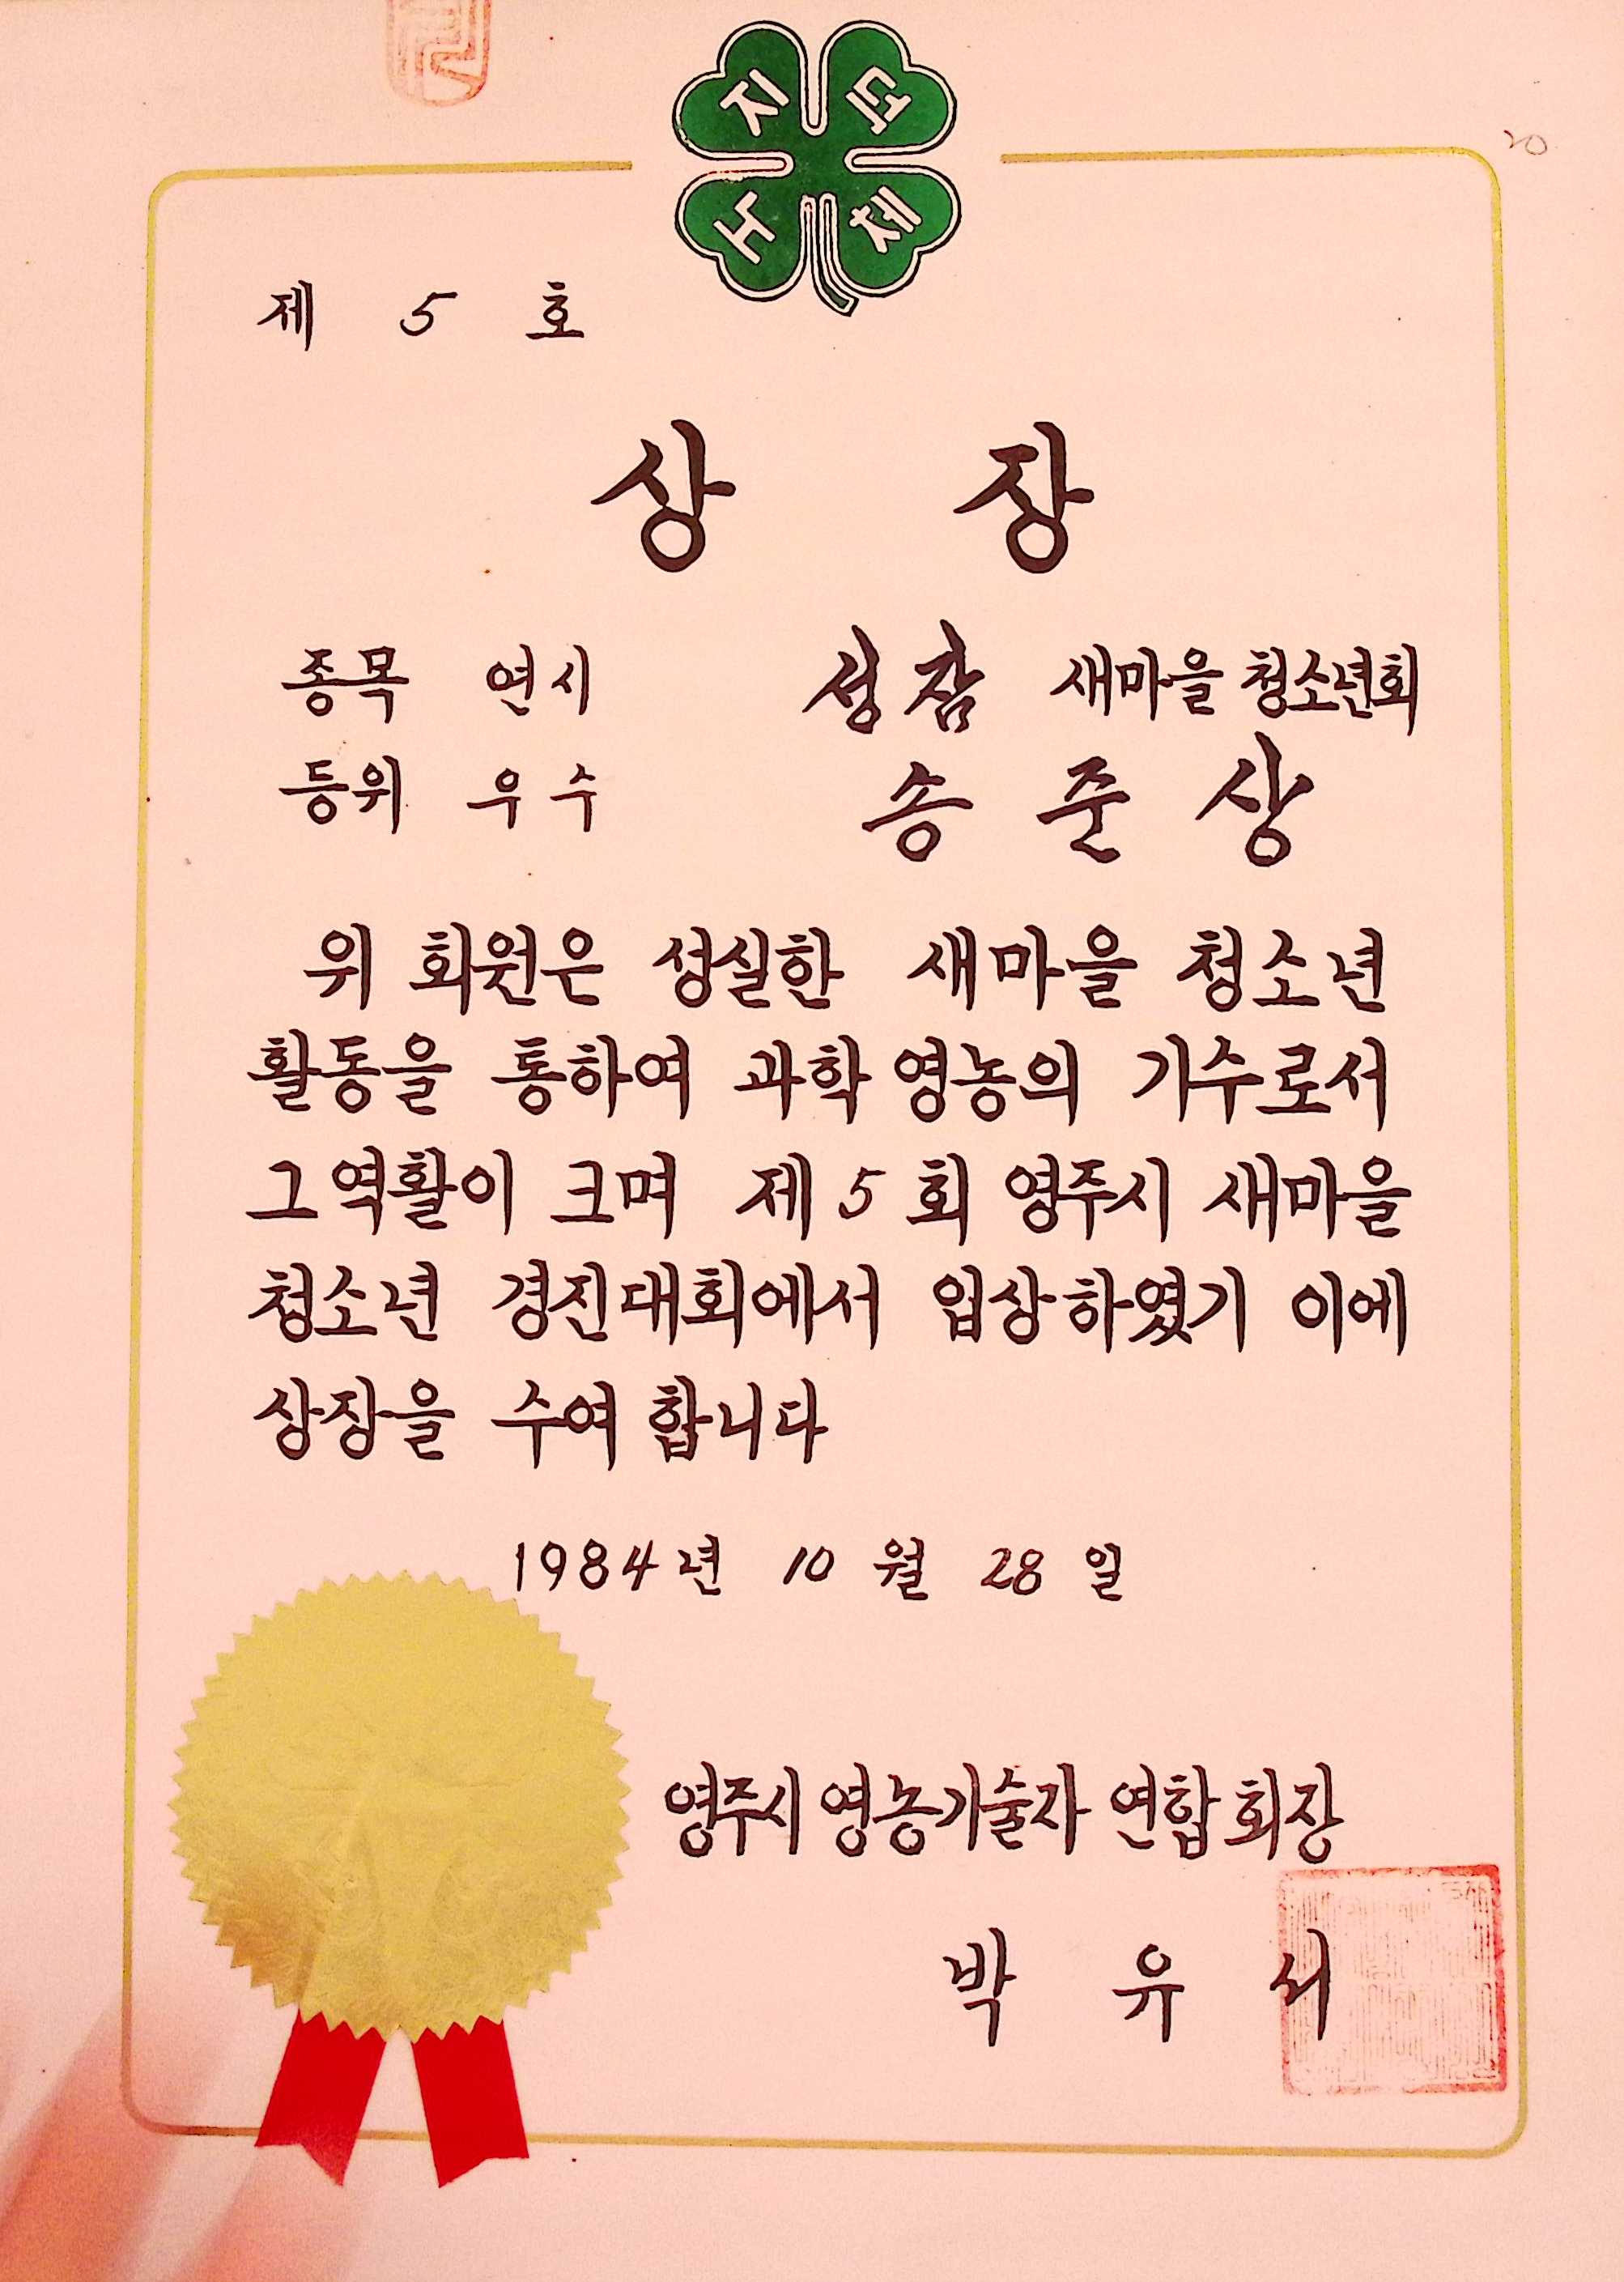 지 덕
노 체
20
제 5 호
상 장
종목 연시 성참 새마을 청소년회
등위 우수 송 준 상
위 회원은 성실한 새마을 청소년
활동을 통하여 과학 영농의 기수로서
그 역활이 크며 제 5 회 영주시 새마을
청소년 경진대회에서 입상하였기 이에
상장을 수여 합니다
1984년 10 월 28 일
영주시 영농기술자 연합회장
박 유 서